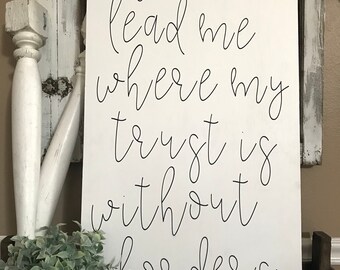 lead me
where my
trust is
without